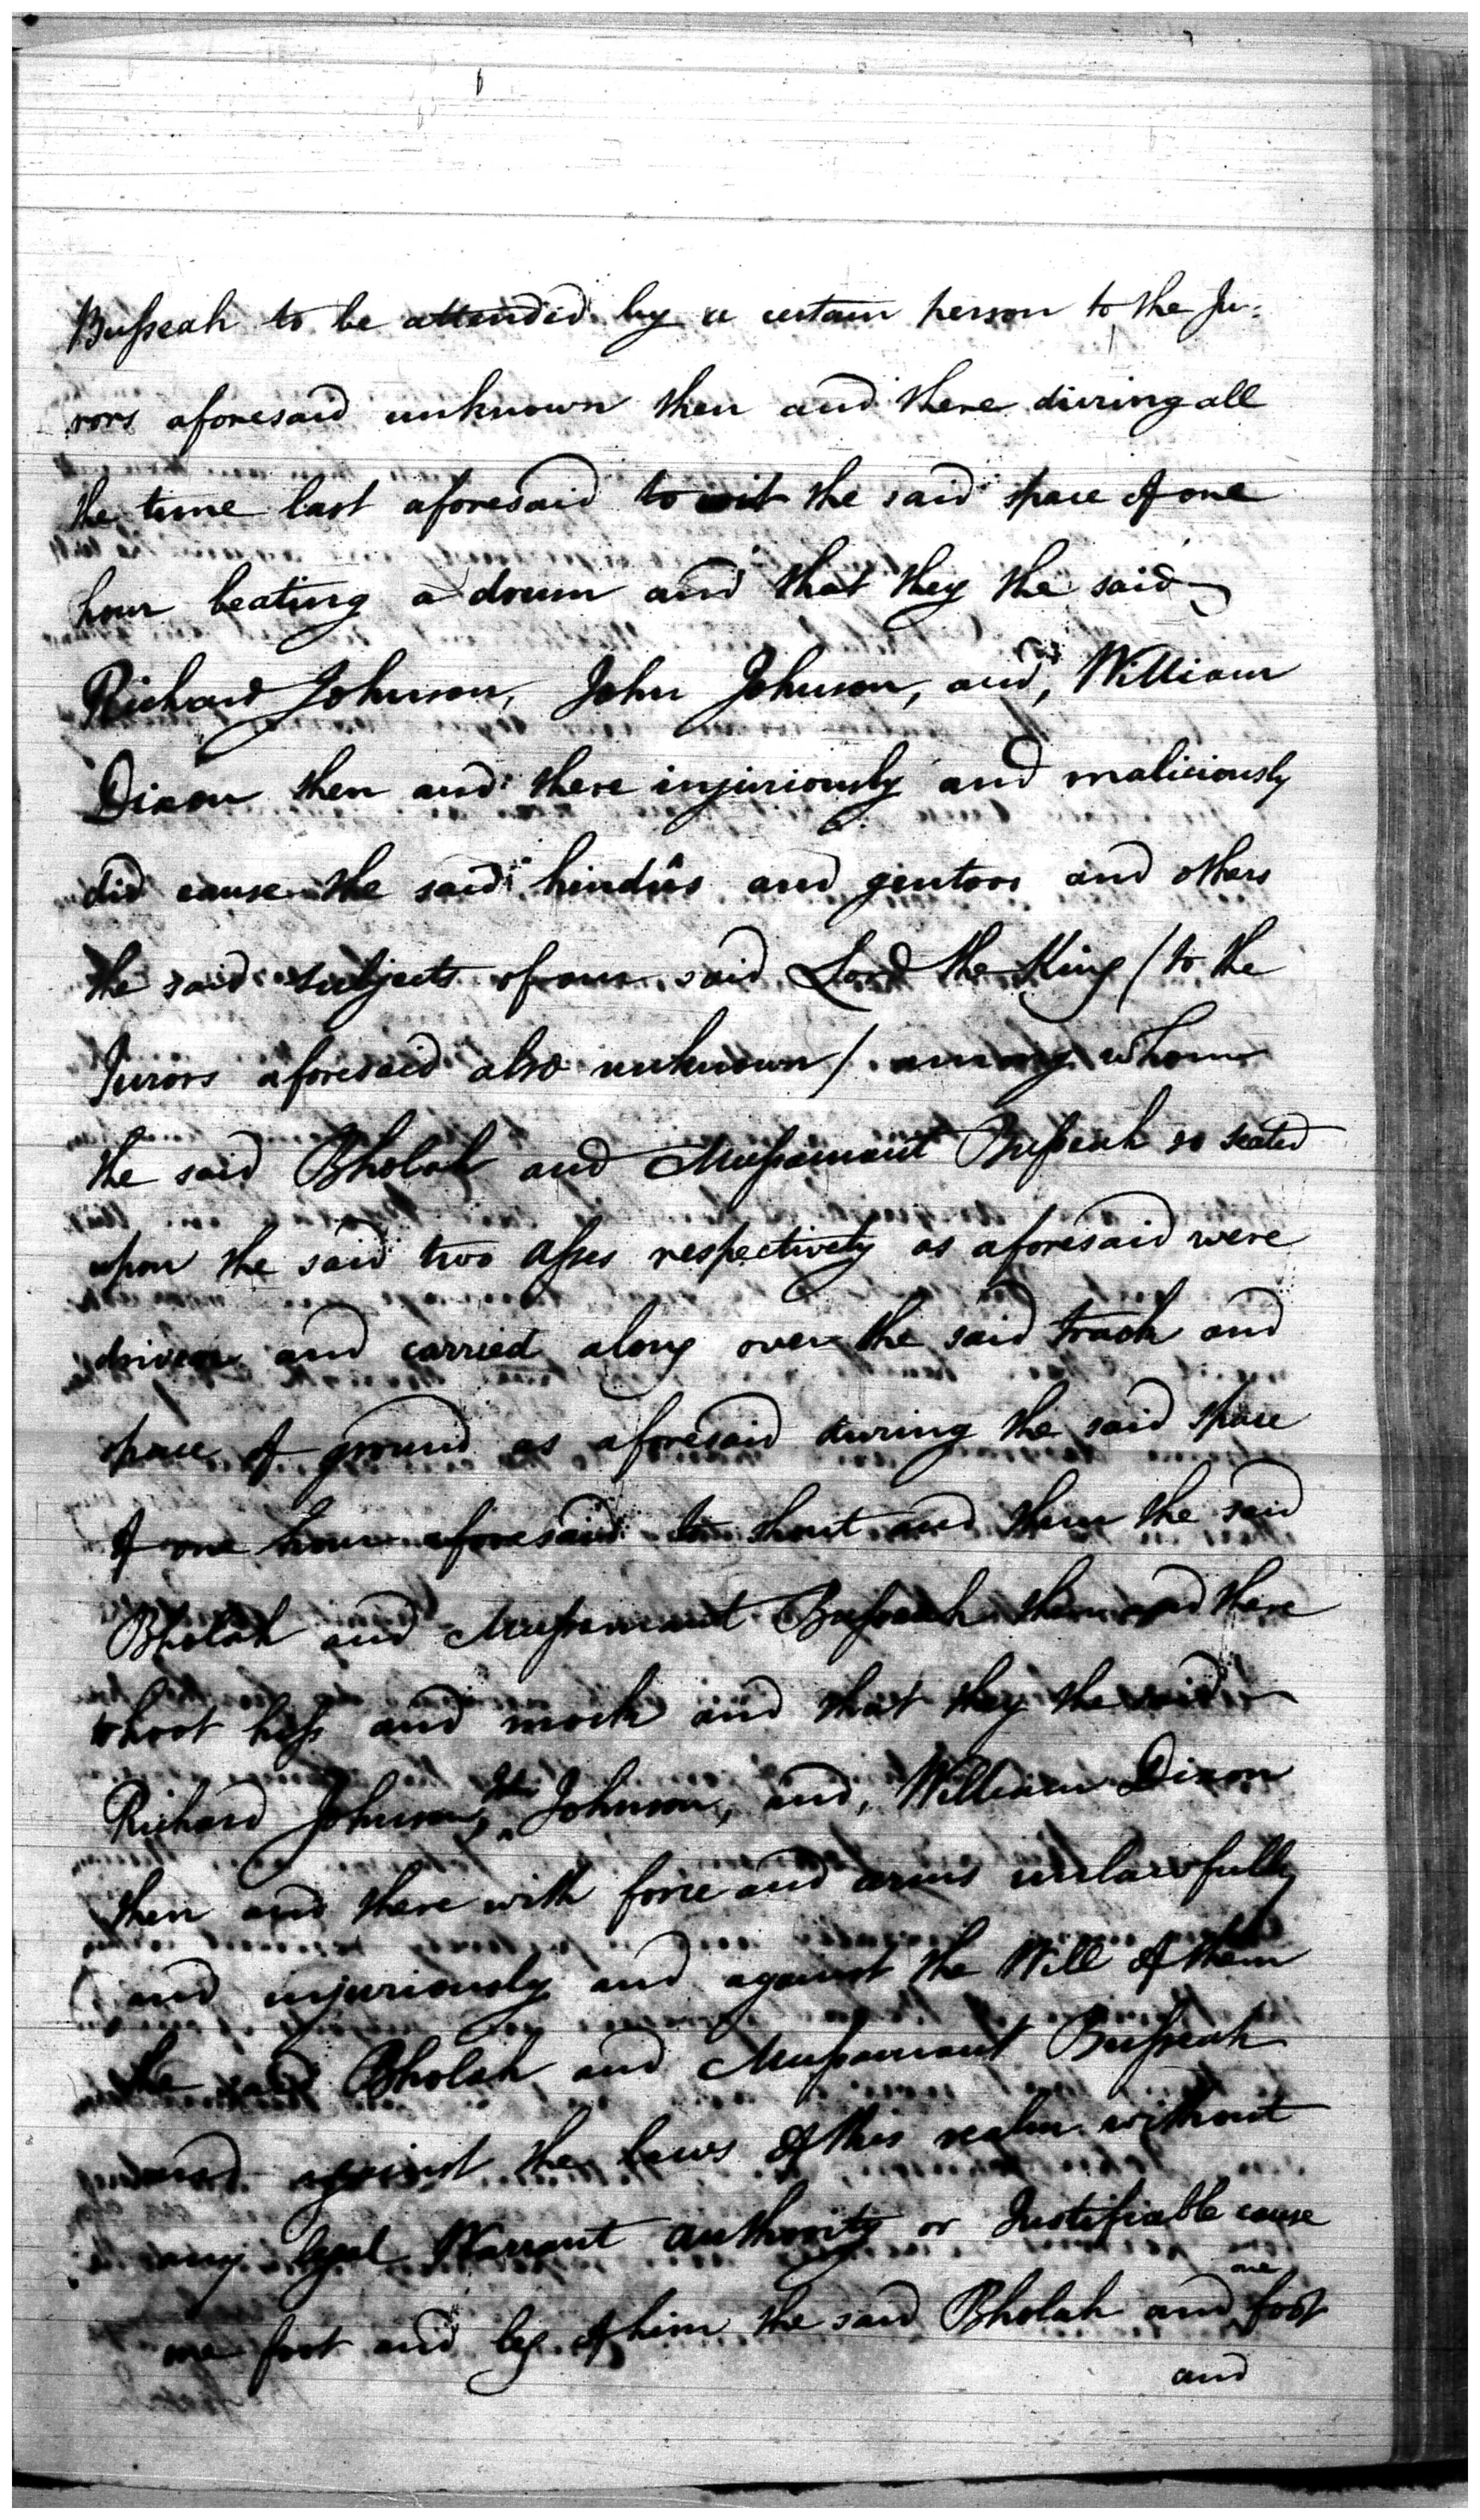 Bußeah to be attended by a certain person to the Ju=
rors aforesaid unknown then and there during all
the time last aforesaid to wit the said space of one
hour beating a drum and that they the said
Richard Johnson, John Johnson, and, William
Dixon then and there injuriously and maliciously
did cause the said hindûs and gentoos and others
the said subjects of our said Lord the King / to the
Jurors aforesaid also unknown / among whom
the said Bholah and Mußamaut Bußeah so seated
upon the said two aßes respectively as aforesaid were
driven and carried along over the said track and
space of ground as aforesaid during the said space
of one hour aforesaid to shout and them the said
Bholah and Mußamaut Bußeah then and there
to hoot hiß and mock and that they the said
Richard Johnson, John Johnson, and, William Dixon
then and there with force and arms unlawfully
and injuriously and against the Will of them
the said Bholah and Mußamaut Bußeah
and against the laws of this realm without
any legal Warrant authority or Justifiable cause
one foot and leg of him the said Bholah and one foot
and